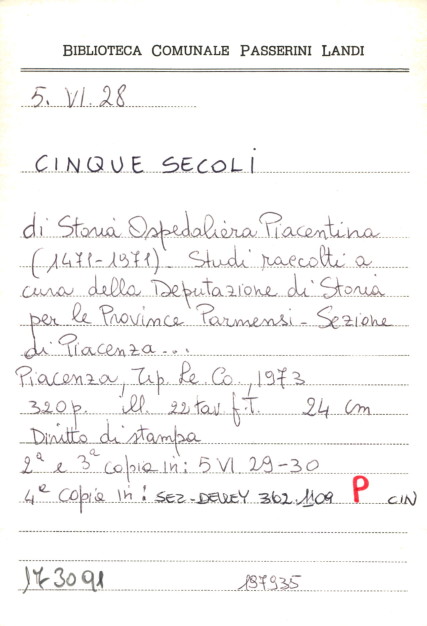 BIBLIOTECA COMUNALE PASSERINI LANDI
5. VI. 28
CINQUE SECOLI
di Storia Ospedaliera Piacentina
(1471-1971). Studi raccolti a
cura della Deputazione di Storia
per le Province Parmensi - Sezione
di Piacenza...
Piacenza, Tip. Le. Co., 1973
320p. ill. 22 tav. f.T. 24 cm
Diritto di stampa
2ª e 3ª copia in: 5 VI. 29-30
4ª copia in: SEZ-DEWEY 362.1109 P CIN
173091 197935